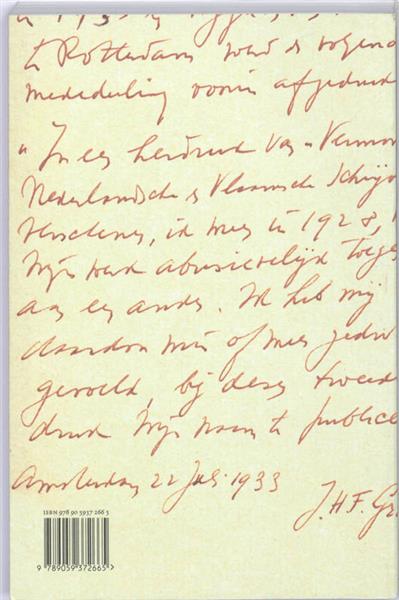 te Rotterdam werd de volgen
mededeling voorin afgedruk
"In een herdruk van "Vermom
Nederlandsche & Vlaamsche Schrijv
verschenen, ik meen in 1928,
mijn werk abusievelijk toege
aan een ander. Ik heb mij
daardoor min of meer gedw
gevoeld, bij deze tweede
druk mijn naam te publice
Amsterdam 22 Juli 1933
J.H.F. Gr
ISBN 978 90 5937 266 5
9 789059 372665 >